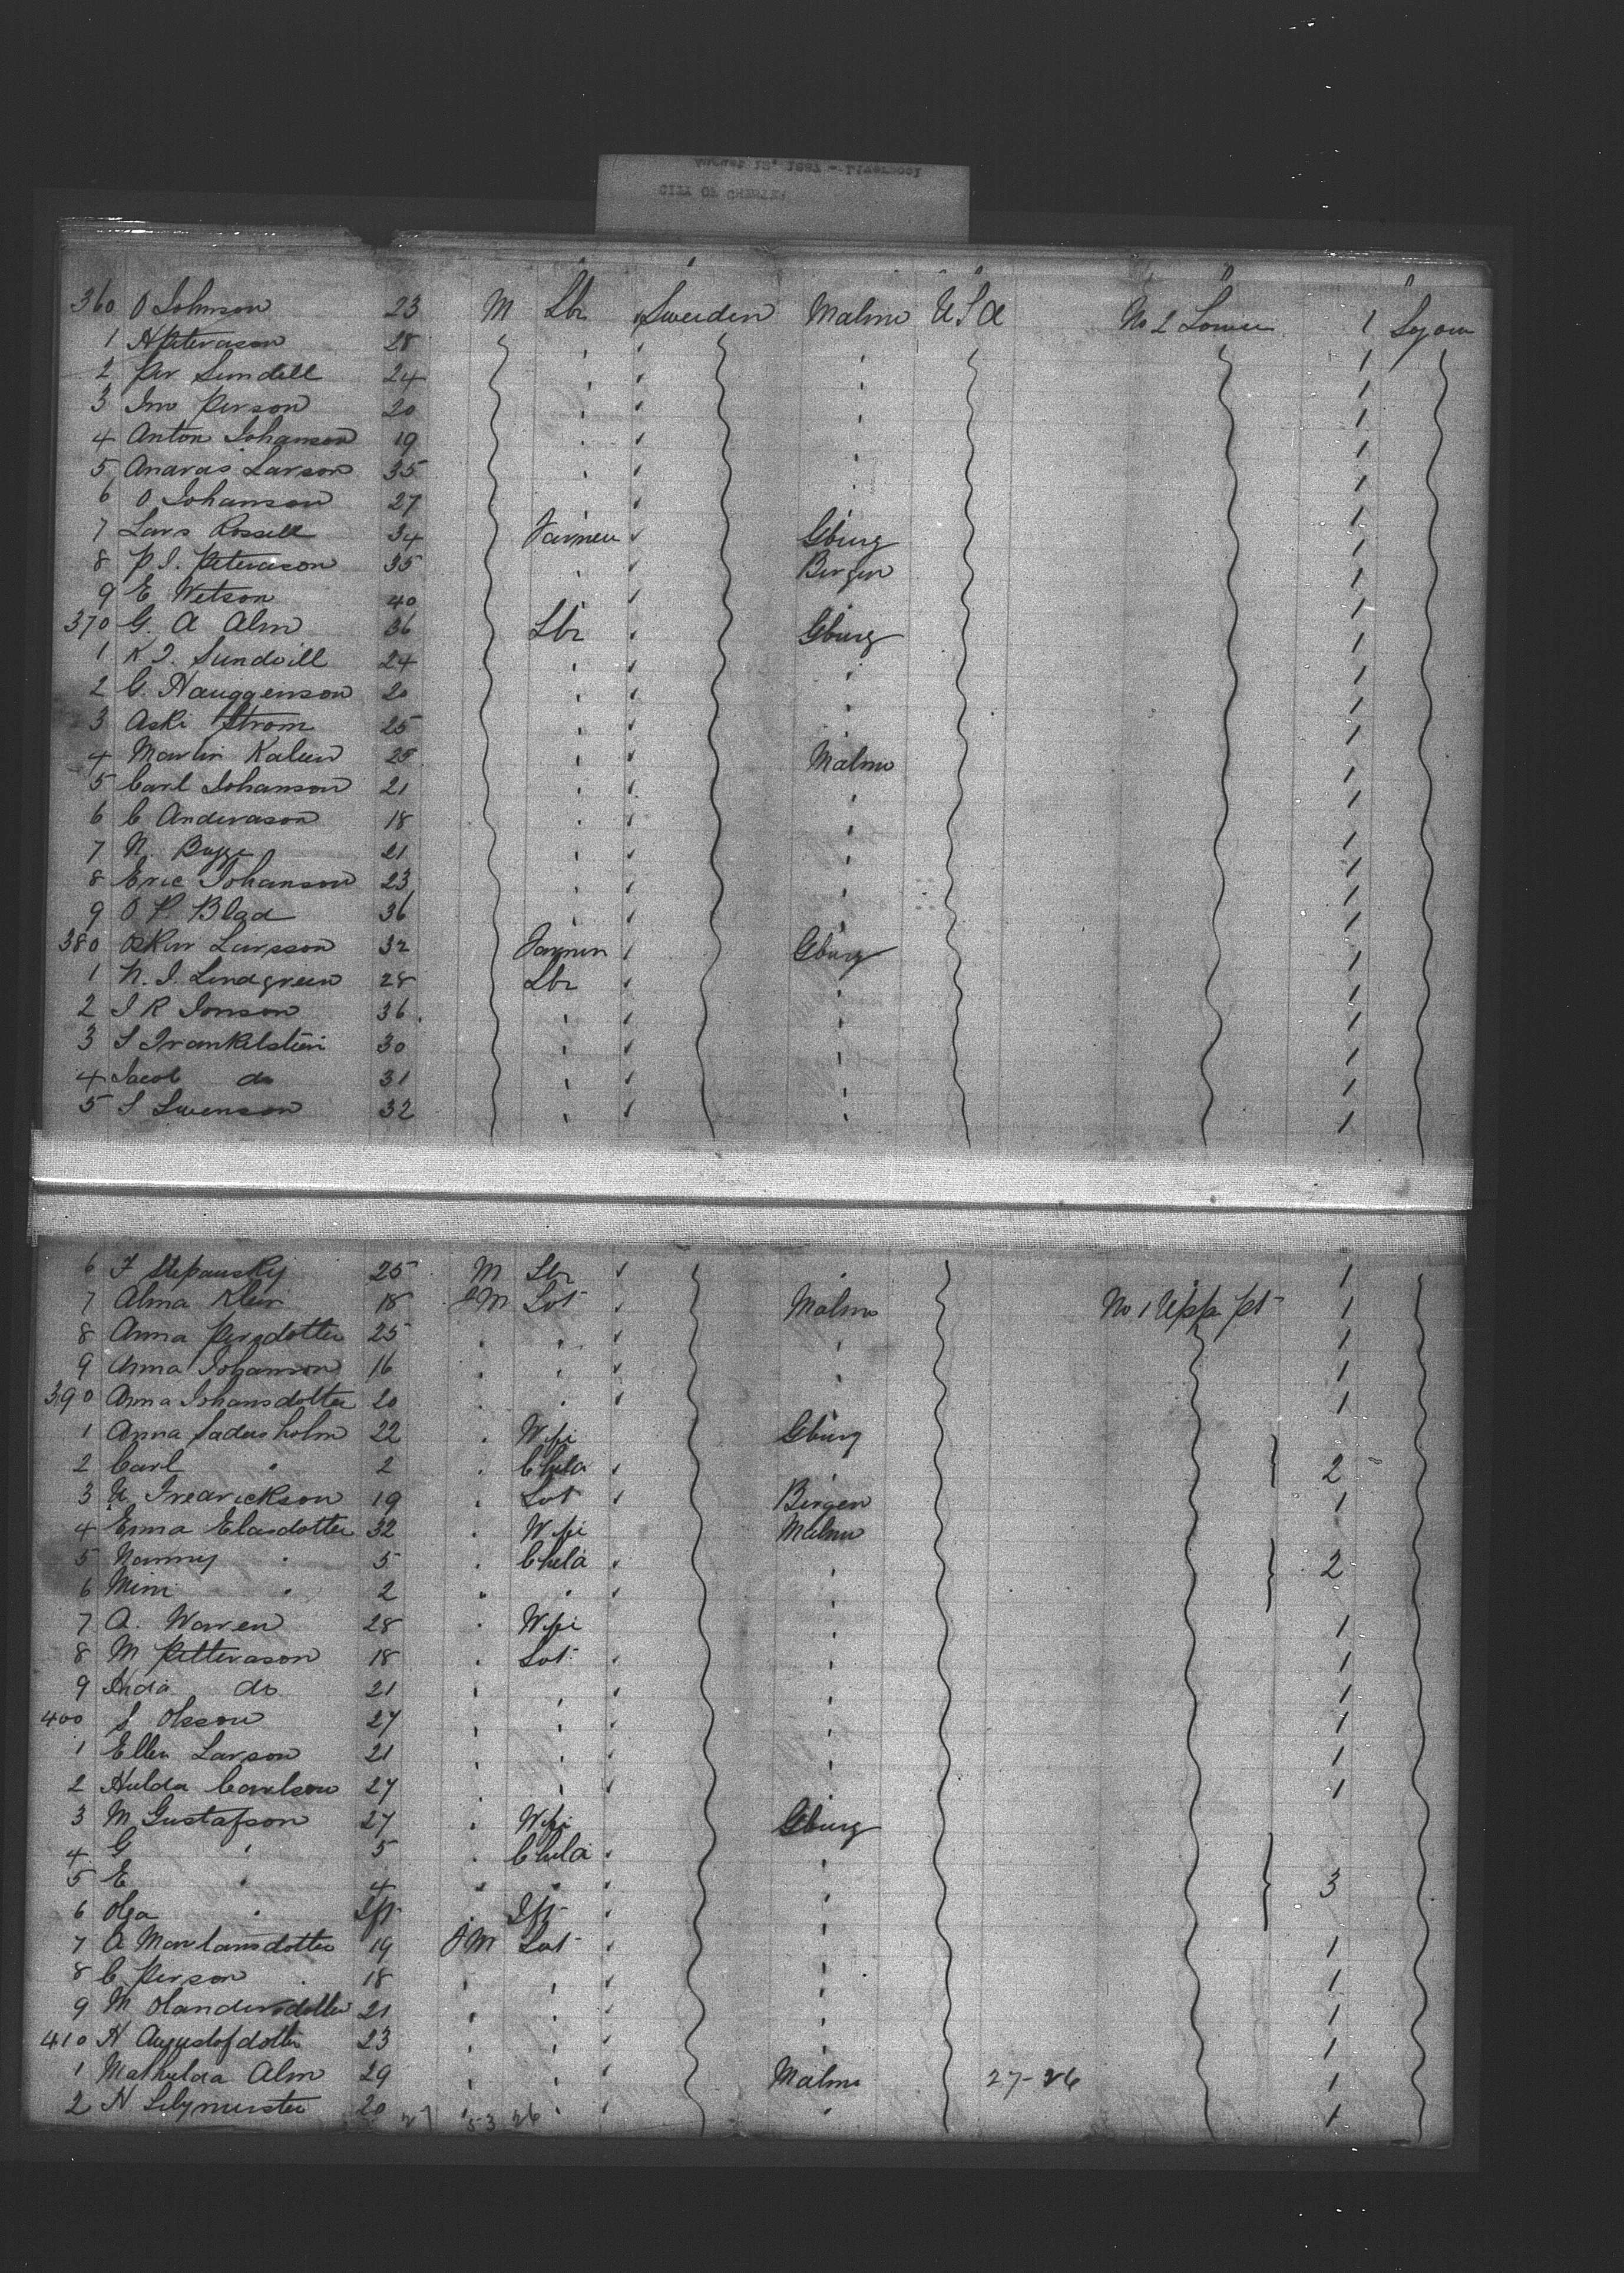 August 12' 1887 - Liverpool
CITY OF CHESTER
360 O Johnson 23 M Lbr Sweeden Malmo U S A No 2 Lower 1 Sojour
1 H Peterason 28 1
2 Per Sundell 24 1
3 Jno Person 20 1
4 Anton Johanson 19 1
5 Anaras Larson 35 1
6 O Johanson 27 1
7 Lars Rossell 34 Farmer Gburg 1
8 P J. Peterason 35 Bergen 1
9 E Wetson 40 1
370 G. A Alm 36 Lbr Gburg 1
1 K J. Sundvill 24 1
2 C. Hauggenson 20 1
3 Aski Strom 25 1
4 Martin Kaleen 28 Malmo 1
5 Carl Johanson 21 1
6 C Anderason 18 1
7 N. Bugge 21 1
8 Eric Johanson 23 1
9 O. P. Blad 36 1
380 Oskar Larsson 32 Farmer Gburg 1
1 N. J. Lindgreen 28 Lbr 1
2 J R Jonson 36 1
3 S Frankelstein 30 1
4 Jacob do 31 1
5 S Swenson 32 1
6 F Stepansky 25 M Lbr 1
7 Alma Klein 18 F M Svt Malmo No 1 Upp Pt 1
8 Anna Persdotter 25 1
9 Anna Johanson 16 1
390 Anna Johansdotter 20 1
1 Anna holm 22 Wife Gburg
2 Carl " 2 Child 2
3 U Fredrickson 19 Svt Bergen 1
4 Emma Elasdotter 32 Wife Malmo
5 Nanny " 5 Child 2
6 Mini " 2
7 A. Waren 28 Wife 1
8 M Petterason 18 Svt 1
9 Hida do 21 1
400 S Olsson 27 1
1 Ellen Larson 21 1
2 Hulda Carlson 27 1
3 M Gustafson 27 Wife Gburg
4 G " 5 Child
5 E " 4 3
6 Olga " Ift Ift
7 A Marlansdotter 19 F M Svt 1
8 C Person 18 1
9 M Olandersdotter 21 1
410 H Augustofdotter 23 1
1 Mathulda Alm 29 Malmo 27-26 1
2 H Lilymerster 20 1
27 53 26